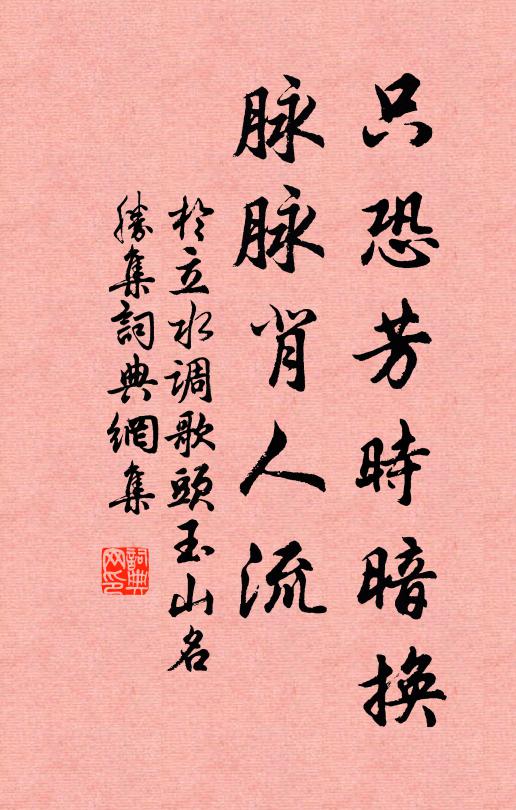 只恐芳時暗換
脉脉背人流
於立水调歌頭玉山名
勝集詞典網集
詞典
网印